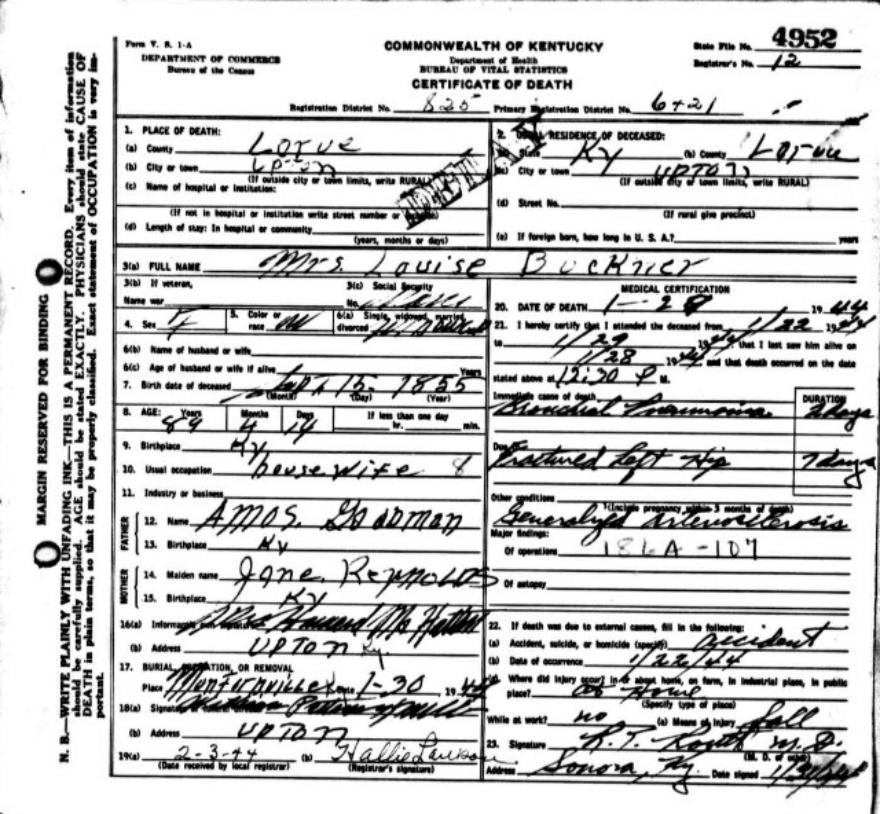 Form V. S. 1-A
DEPARTMENT OF COMMERCE
Bureau of the Census
COMMONWEALTH OF KENTUCKY
Department of Health
BUREAU OF VITAL STATISTICS
CERTIFICATE OF DEATH
State File No. 4952
Registrar's No. 12
Registration District No. 825 Primary Registration District No. 6421
MARGIN RESERVED FOR BINDING
N. B.—WRITE PLAINLY WITH UNFADING INK—THIS IS A PERMANENT RECORD. Every item of information
should be carefully supplied. AGE should be stated EXACTLY. PHYSICIANS should state CAUSE OF
DEATH in plain terms, so that it may be properly classified. Exact statement of OCCUPATION is very im-
portant.
1. PLACE OF DEATH:
(a) County Larue
(b) City or town UPTON
(If outside city or town limits, write RURAL)
(c) Name of hospital or institution:
(If not in hospital or institution write street number or
(d) Length of stay: In hospital or community
(years, months or days)
2. USUAL RESIDENCE OF DECEASED:
(a) State Ky (b) County Larue
(c) City or town UPTON
(If outside city or town limits, write RURAL)
(d) Street No.
(If rural give precinct)
(e) If foreign born, how long in U. S. A.? years
3(a) FULL NAME Mrs. Louise Buckner
3(b) If veteran,
Name war
3(c) Social Security
No.
4. Sex F 5. Color or race W 6(a) Single, widowed, married, divorced
6(b) Name of husband or wife
6(c) Age of husband or wife if alive Years
7. Birth date of deceased Sept 15 1855
(Month) (Day) (Year)
8. AGE: Years Months Days If less than one day
89 4 14 hr. min.
9. Birthplace Ky
10. Usual occupation house wife 8
11. Industry or business
FATHER
12. Name Amos. Goodman
13. Birthplace Ky
MOTHER
14. Maiden name Jane Reynolds
15. Birthplace Ky
16(a) Informant's own signature
(b) Address UPTON Ky.
17. BURIAL, CREMATION, OR REMOVAL
Place Munfordville Date 1-30 1944
18(a) Signature of funeral director
(b) Address UPTON
19(a) 2-3-44 (b) Hallie Lawson
(Date received by local registrar) (Registrar's signature)
MEDICAL CERTIFICATION
20. DATE OF DEATH 1-29 1944
21. I hereby certify that I attended the deceased from 1/22 1944
to 1/29 1944 that I last saw him alive on
1/28 1944 and that death occurred on the date
stated above at 12:30 P M.
Immediate cause of death DURATION
Bronchial Pneumonia 2 days
Due to
Fractured Left Hip 7 days
Other conditions
(Include pregnancy within 3 months of death)
Generalized Arteriosclerosis
Major findings:
Of operations 186A-107
Of autopsy
22. If death was due to external causes, fill in the following:
(a) Accident, suicide, or homicide (specify) accident
(b) Date of occurrence 1/22/44
Where did injury occur? in or about home, on farm, in industrial place, in public
place? at Home
(Specify type of place)
While at work? no (e) Means of injury Fall
23. Signature R. T. M.D.
(M. D. or other)
Address Sonora, Ky. Date signed 1/31/44